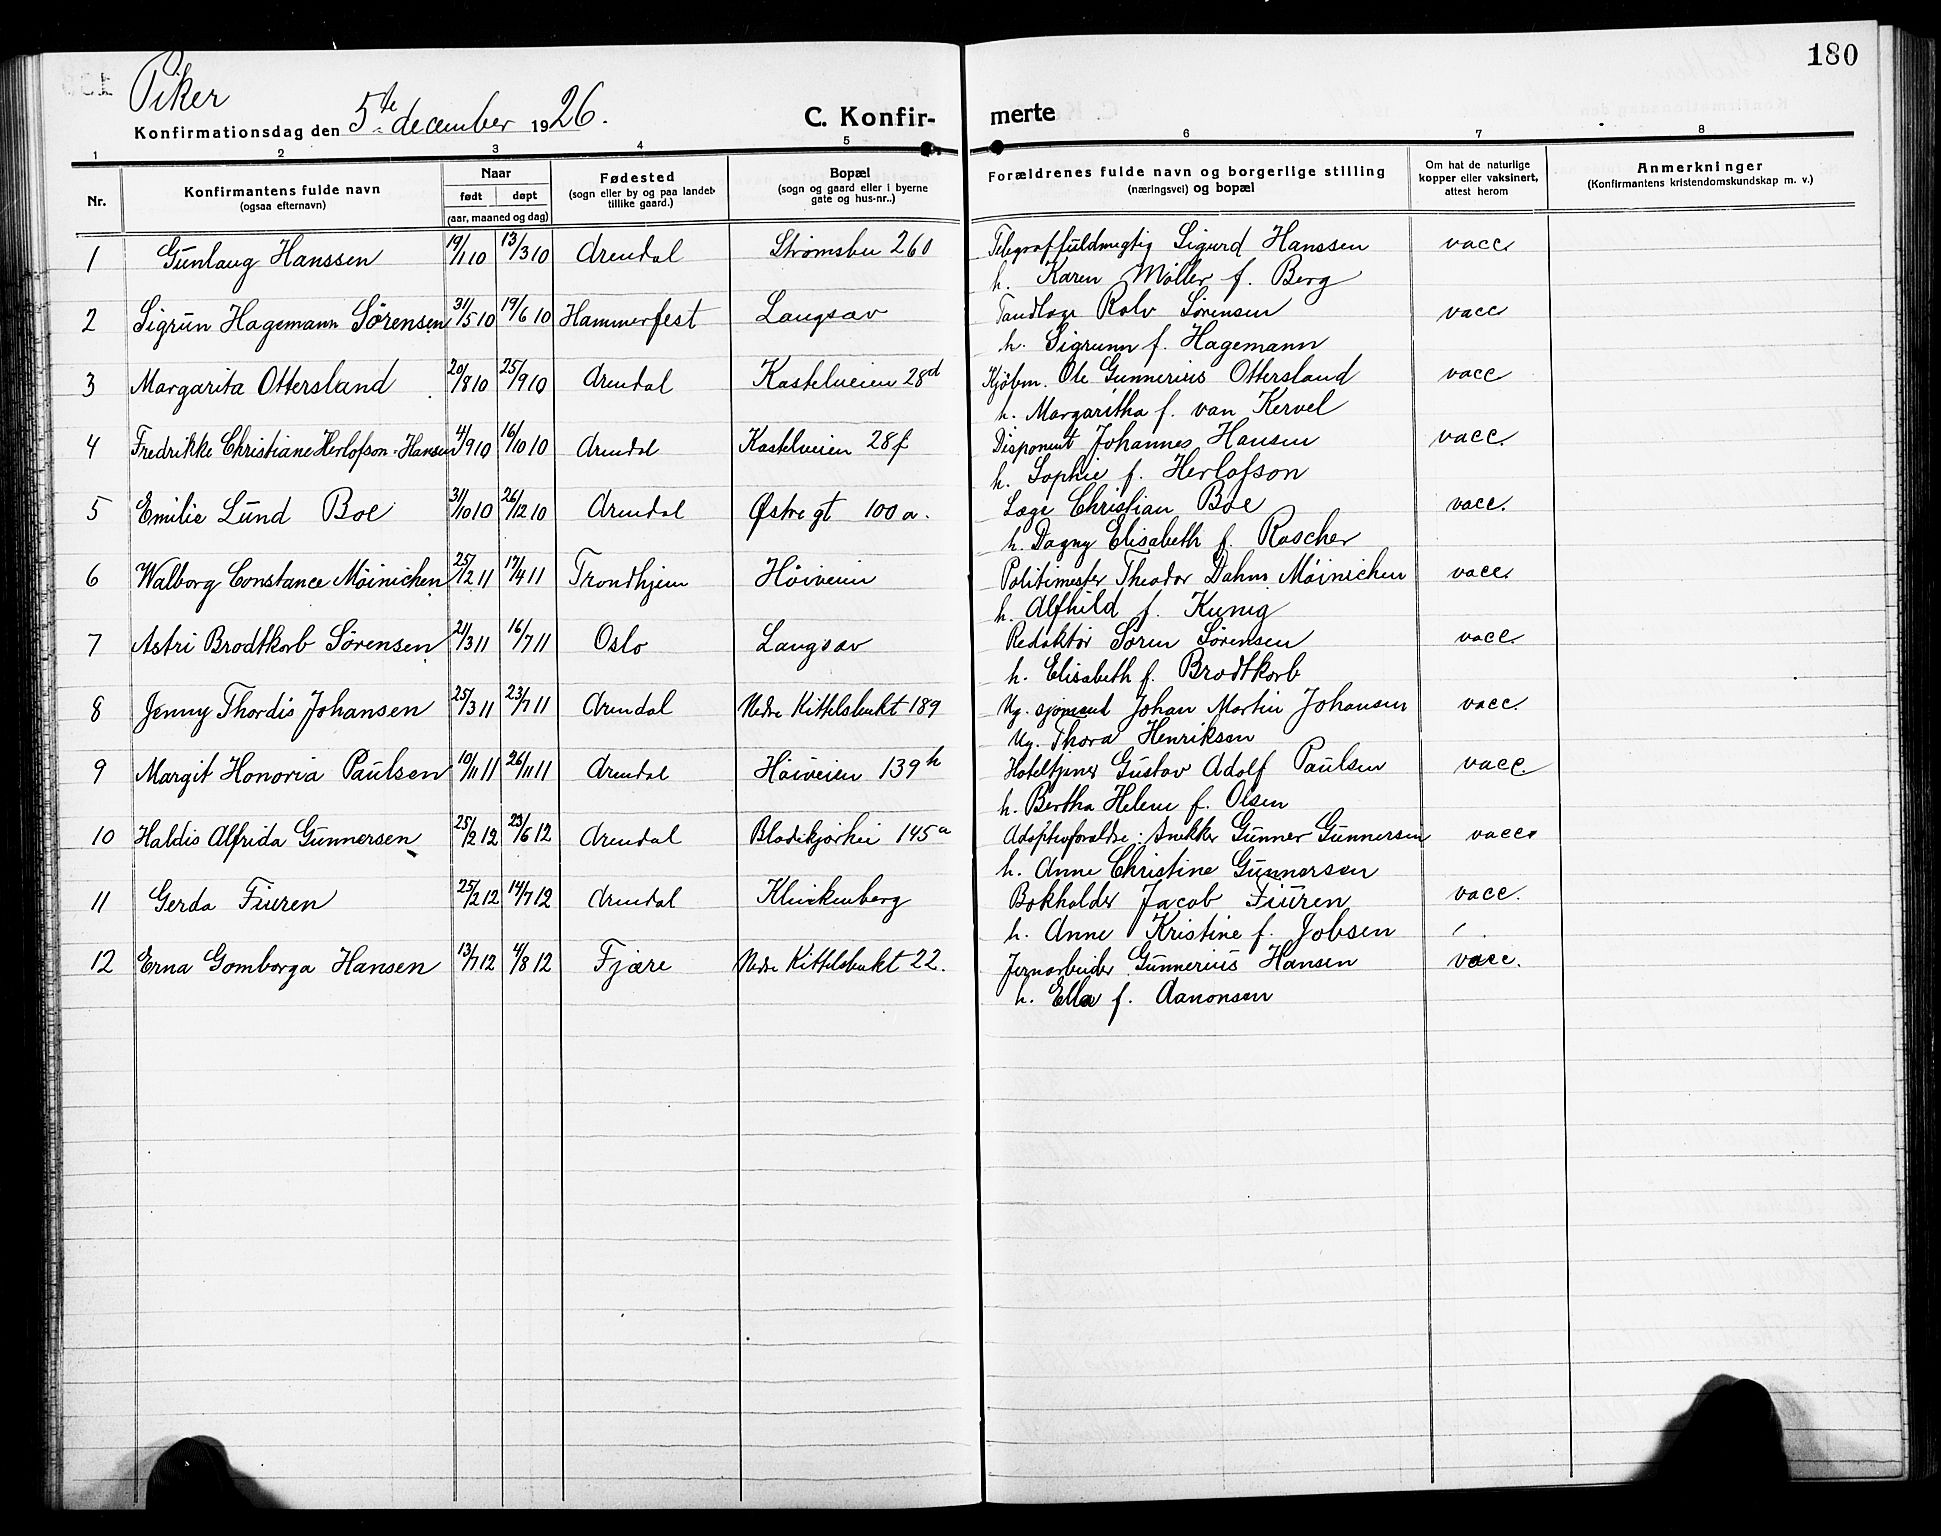 180
Piker
Konfirmationsdag den 5te december 1926.
C. Konfir-
merte
1 2 3 4 5 6 7 8
Nr.
Konfirmantens fulde navn
(ogsaa efternavn)
Naar
født døpt
(aar, maaned og dag)
Fødested
(sogn eller by og paa landet
tillike gaard.)
Bopæl
(sogn og gaard eller i byerne
gate og hus-nr..)
Forældrenes fulde navn og borgerlige stilling
(næringsvei) og bopæl
Om hat de naturlige
kopper eller vaksinert,
attest herom
Anmerkninger
(Konfirmantens kristendomskundskap m. v.)
1 Gunlaug Hanssen 19/1 10 13/3 10 Arendal Strømsbu 260 Telegraffuldmegtig Sigurd Hanssen vacc.
h. Karen Møller f. Berg
2 Sigrun Hagemann Sörensen 31/5 10 19/6 10 Hammerfest Langsæv Tandlæge Rolv Sørensen vacc
h. Sigrunn f. Hagemann
3 Margarita Ottersland 20/8 10 25/9 10 Arendal Kastelveien 28d Kjøbm. Ole Gunnerius Ottersland vacc
h. Margaritha f. van Kervel
4 Fredrikke Christiane Herlofson-Hansen 4/9 10 16/10 10 Arendal Kastelveien 28f Disponent Johannes Hansen vacc.
h. Sophie f. Herlofson
5 Emilie Lund Boe 31/10 10 26/12 10 Arendal Østregt 100a. Læge Christian Boe vacc.
h. Dagny Elisabeth f. Rascher
6 Walborg Constance Möinichen 25/2 11 17/4 11 Trondhjem Höiveien Politimester Theodor Dahm Möinichen vacc.
h. Alfhild f. Kunig
7 Astri Brodtkorb Sørensen 21/3 11 16/7 11 Oslo Langsæv Redaktør Søren Sørensen vacc.
h. Elisabeth f. Brodtkorb
8 Jenny Thordis Johansen 25/3 11 23/7 11 Arendal Nedre Kittelsbukt 189 Ug. sjømand Johan Martin Johansen vacc.
Ug. Thora Henriksen
9 Margit Honoria Paulsen 10/11 11 26/11 11 Arendal Höiveien 139h Hoteltjener Gustav Adolf Paulsen vacc.
h. Bertha Helene f. Olsen
10 Haldis Alfrida Gunnersen 25/2 12 23/6 12 Arendal Blødekjørhei 145a Adoptivforældre: Snekker Gunner Gunnersen vacc.
h. Anne Christine Gunnersen
11 Gerda Fiuren 25/2 12 14/7 12 Arendal Klinkenberg Bokholder Jacob Fiuren vacc.
h. Anne Kristine f. Jobsen
12 Erna Gomborga Hansen 13/7 12 4/8 12 Fjære Nedre Kittelsbukt 22. Jernarbeider Gunnerius Hansen vacc.
h. Ella f. Aanonsen